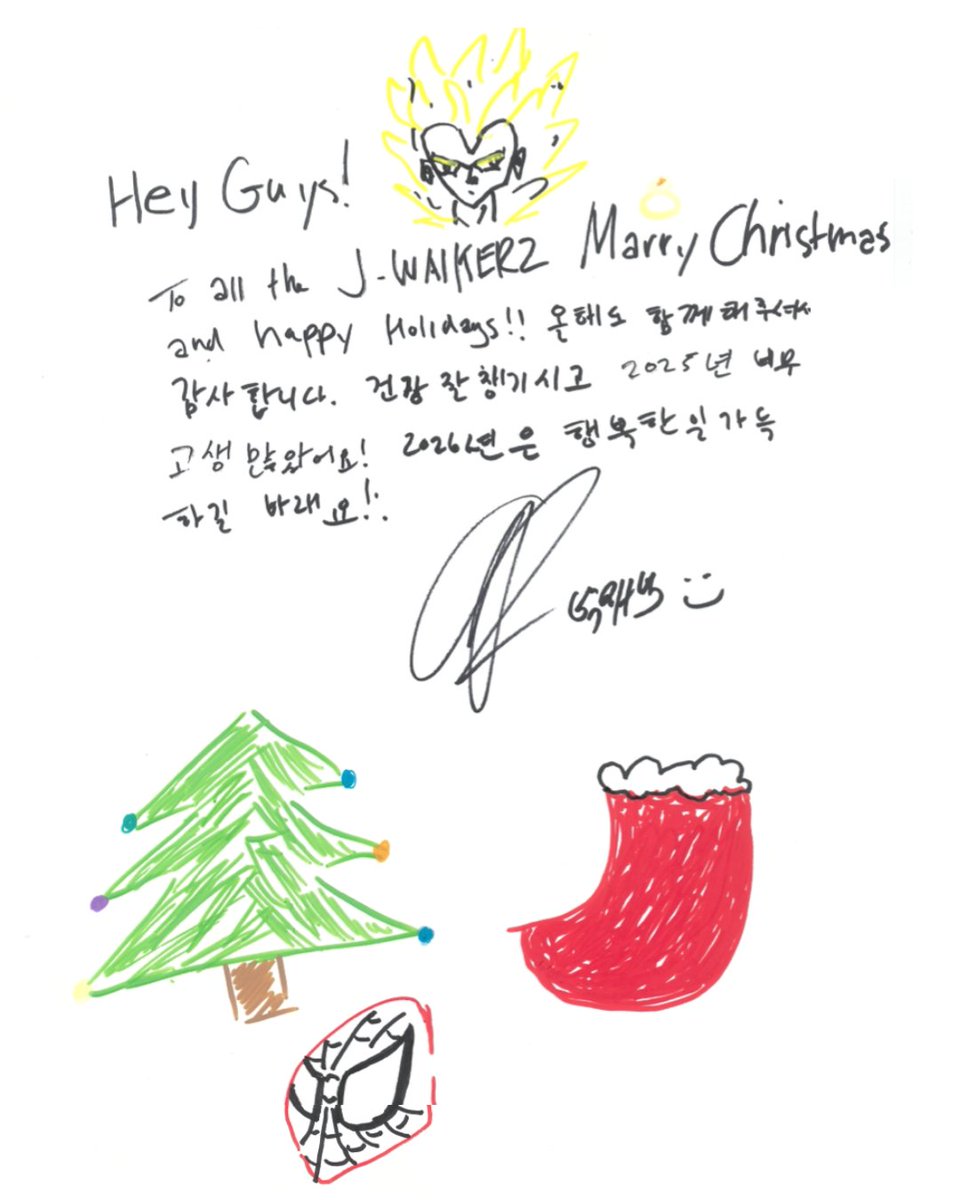 Hey Guys!
To all the J-WALKERZ Marry Christmas
and happy Holidays!! 올해도 함께해주셔서
감사합니다. 건강 잘 챙기시고 2025년 너무
고생 많았어요! 2026년은 행복한 일 가득
하길 바래요!!
박재범 :)